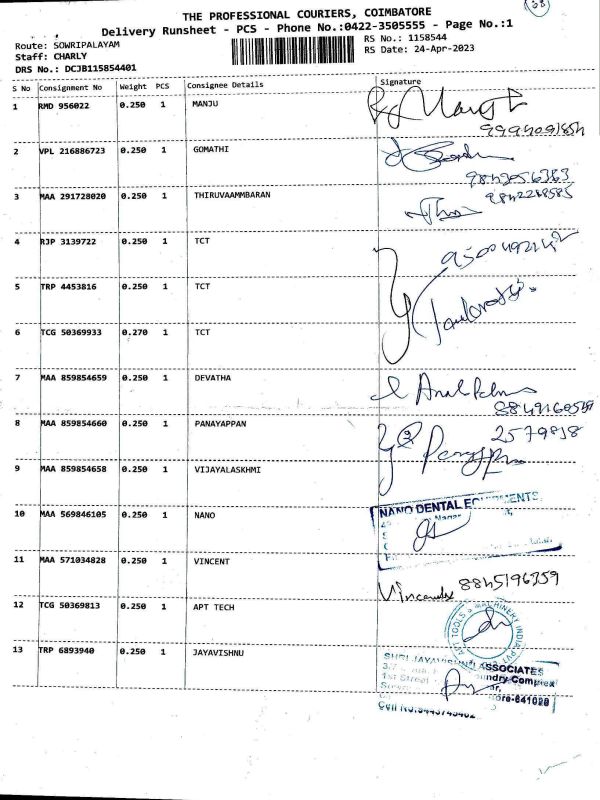 38
THE PROFESSIONAL COURIERS, COIMBATORE
Delivery Runsheet - PCS - Phone No.:0422-3505555 - Page No.:1
Route: SOWRIPALAYAM
RS No.: 1158544
Staff: CHARLY
RS Date: 24-Apr-2023
DRS No.: DCJB115854401
S No Consignment No Weight PCS Consignee Details Signature
1 RMD 956022 0.250 1 MANJU
2 VPL 216886723 0.250 1 GOMATHI
3 MAA 291728020 0.250 1 THIRUVAAMMBARAN
9842248585
4 RJP 3139722 0.250 1 TCT
5 TRP 4453816 0.250 1 TCT
6 TCG 50369933 0.270 1 TCT
7 MAA 859854659 0.250 1 DEVATHA
8 MAA 859854660 0.250 1 PANAYAPPAN
9 MAA 859854658 0.250 1 VIJAYALASKHMI
10 MAA 569846105 0.250 1 NANO
NANO DENTAL
11 MAA 571034828 0.250 1 VINCENT
8845196359
12 TCG 50369813 0.250 1 APT TECH
TOOLS & MACHINERY INDIA PVT
13 TRP 6893940 0.250 1 JAYAVISHNU
ASSOCIATES
1st Street
Complex
641028